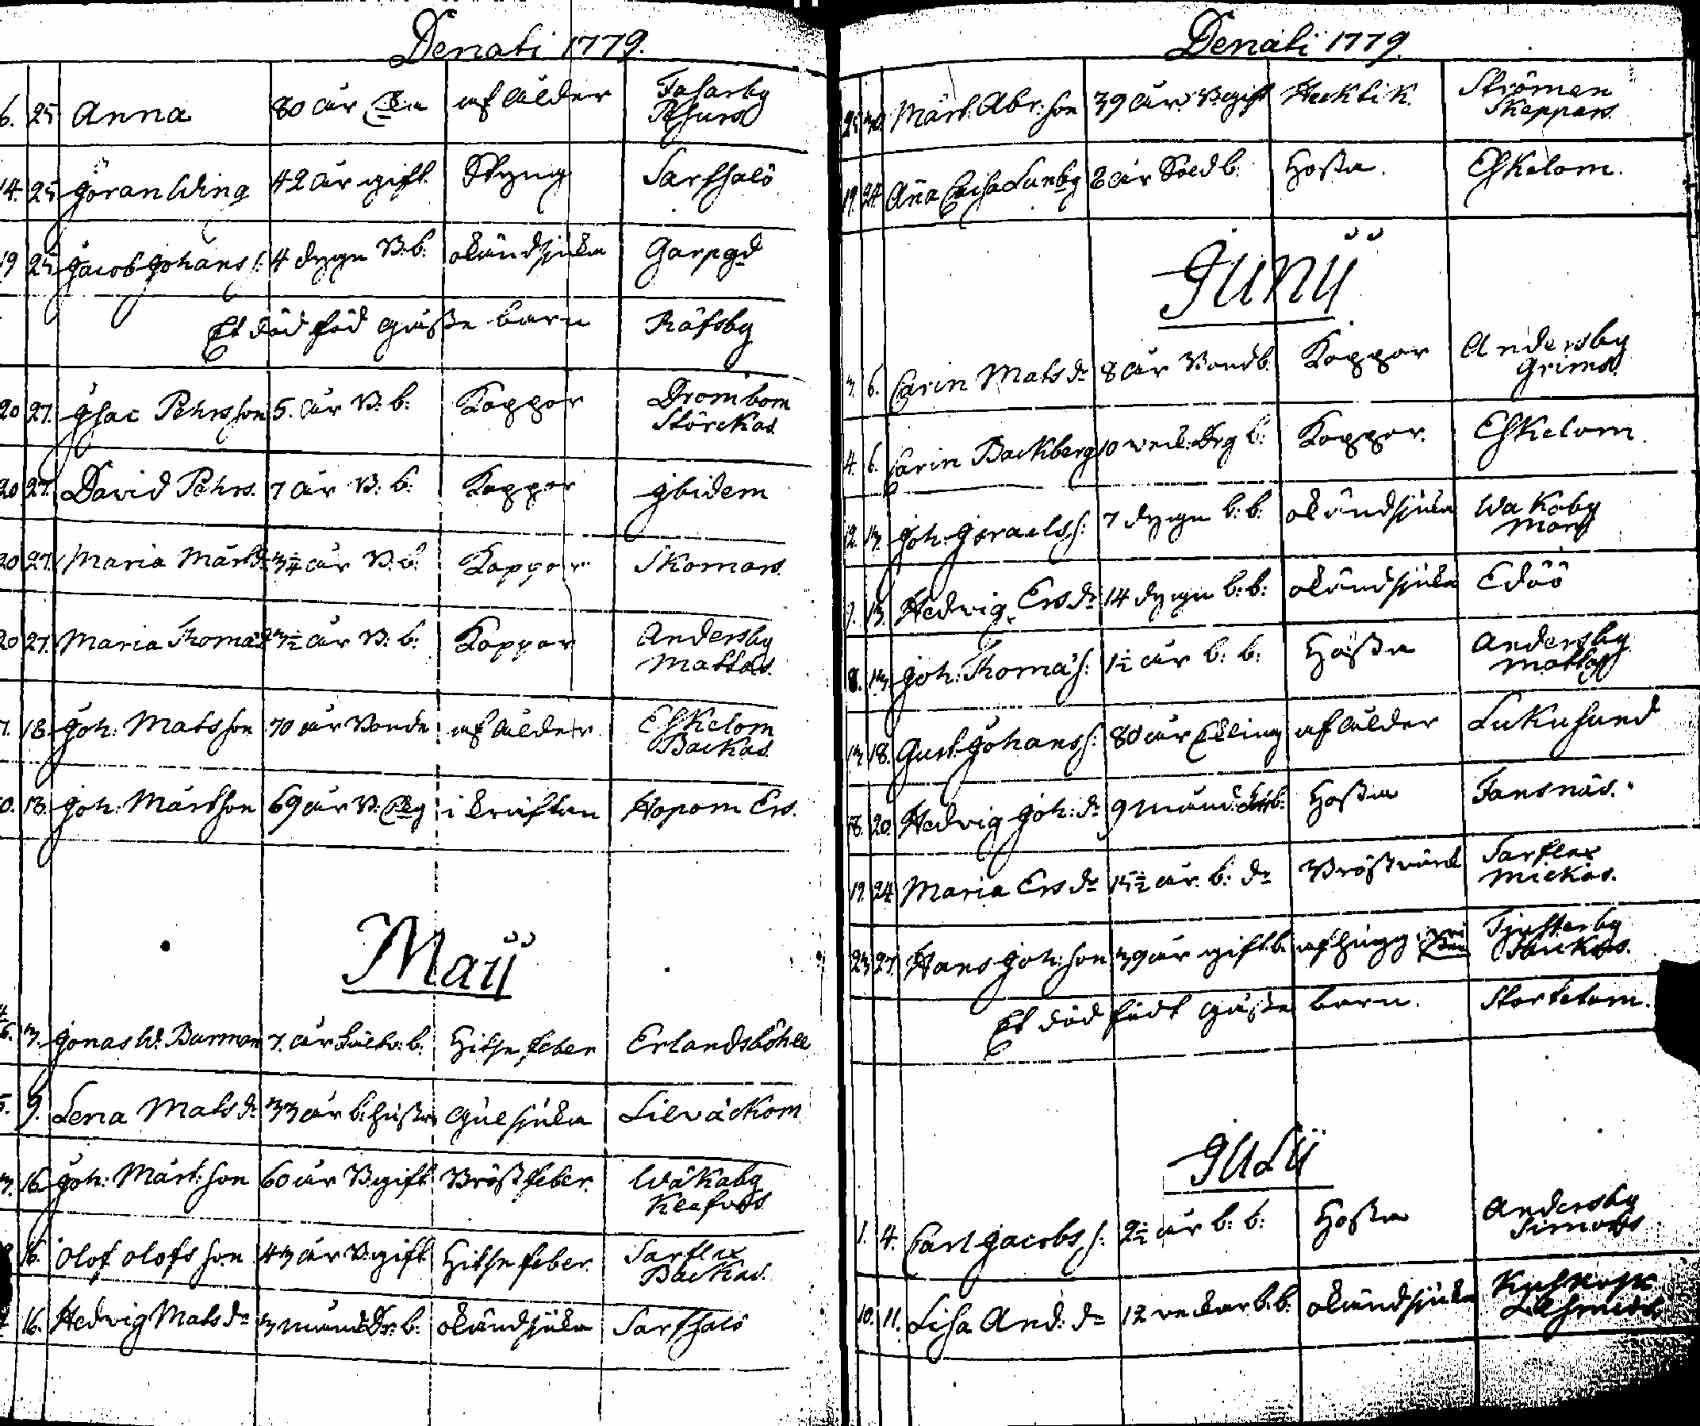 Denati 1779.
6. 25 Anna 80 år Enka af ålder Fasarby
Pehurs
14. 25 Göran Wing 42 år gift Styng Sarfsalö
19 25 Jacob Johans s: 4 dygn B:b. okänd sjuka Garpgd
Et död föd gåsse barn Räfsby
20 27. Isac Pehrsson 5. år B: b: Koppor Drombom
Störckas
20 27. David Pehrs. 7 år B: b: Koppor Ibidem
20 27. Maria Mårtd: 3¼ år B: b: Koppor Skomars
20 27. Maria Thomæd: 3½ år B: b: Koppor Andersby
Mattas
7. 18. Joh: Matsson 70 år Bonde af ålder Eskelom
Backas
10. 13. Joh: Mårtson 69 år B: i kräftan Hopom Ers.
Maij
3. Jonas W: Barman 7. år b: Hitse feber Erlandsböhle
5. 9. Lena Mats d: 33 år b: hustru Gulsjuka Lilväckom
16. Joh: Mårt: son 60 år B: gift Bröst feber. Wåkaby
Klafvas
16. Olof Olofs son 43 år B: gift Hitse feber Sarflax
Backas
16. Hedvig Mats d: 3 månad b: okänd sjuka Sarfsalö
Denati 1779
30. Mårt: Abr: son 39 år B: gift Hecktik Strömen
Skeppars
19. 24. Aña Caisa Lunbg 2 år Sold b. Hosta. Eskelom.
Junij
3. 6. Carin Mats d: 8 år Bond b. Koppor Andersby
Grims
4. 6. Carin Backberg 10 b: Koppor. Eskelom
12. 13. Joh: Israels s: 7 dygn b: b: okänd sjuka Wakoby
Mårs
9. 13. Hedvig Ers d: 14 dygn b: b: okänd sjuka Edöö
8. 13. Joh: Thomæ s: 1½ år b: b: Hosta Andersby
Mattas
13 18. Gust: Johans s: 80 år af ålder Lukusund
18. 20. Hedvig Joh: d: 9 månad b: Hosta Fansnäs.
19. 24. Maria Ers d: 15½ år. b: d: Bröstvärk Sarflax
Mickas.
23 27. Hans Joh: son 39 år gift b. af hugg Tjusterby
Backas.
Et död född gåsse barn. Stortelom.
Julij
1. 4. Carl Jacobs s: 2½ år b: b: Hosta Andersby
Simons
10. 11. Lisa And: d: 12 veckor b. b: okänd sjuka Kuskosk